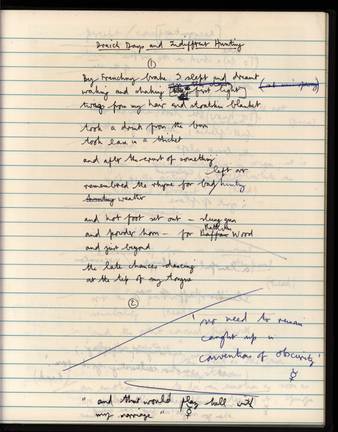 Drench Days and Indifferent Hunting
(1)
By Frenchay brake I slept and dreamt
waking and shaking first light
twigs from my hair and blanket
took a drink from the burn
took ease in a thicket
and after the event of something
left over
remembered the rhyme for bad hunting
weather
and hot foot set out – slung gun
and powder horn – for Wood
and just beyond
the late chances dancing
at the tip of my tongue
(2)
'no need to remain
caught up in
convention of obscurity'
"and that would play hell with
my marriage"